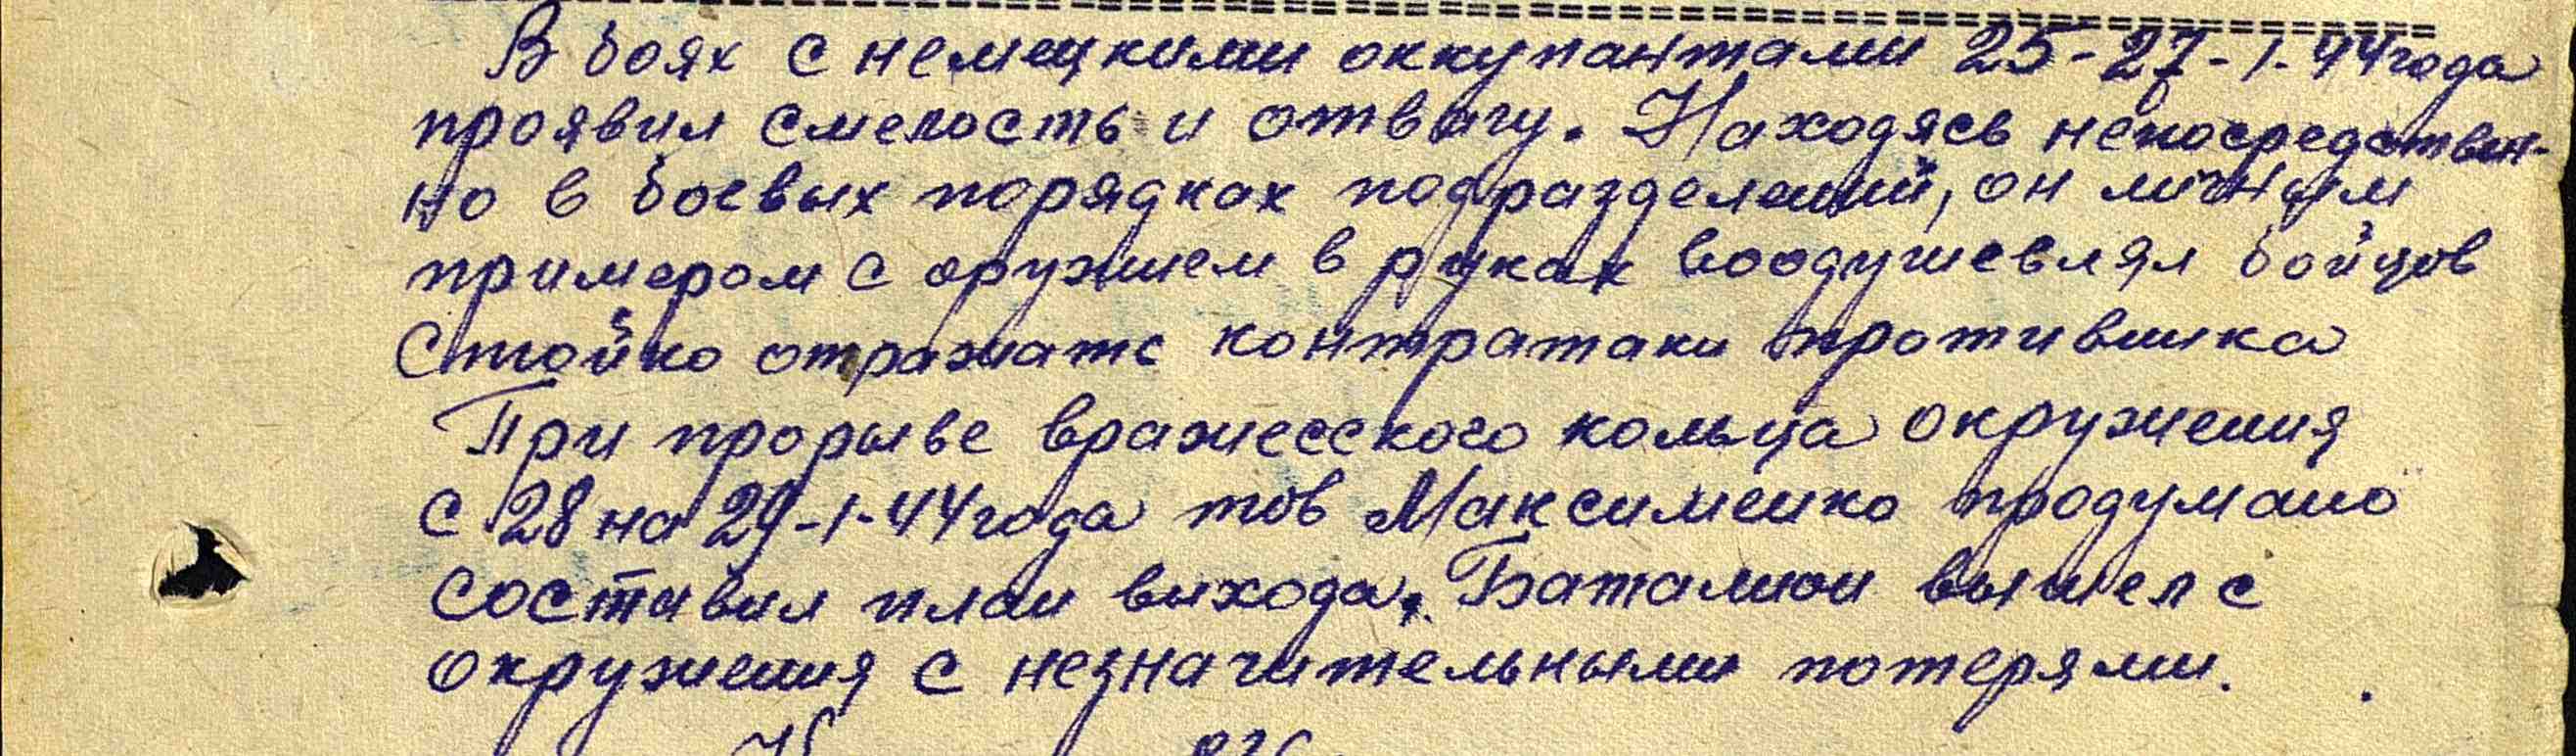 В боях с немецкими оккупантами 25-27-1-44 года
проявил смелость и отвагу. Находясь непосредствен-
но в боевых порядках подразделений, он личным
примером с оружием в руках воодушевлял бойцов
стойко отражать контратаки противника
При прорыве вражесского кольца окружения
с 28 на 29-1-44 года тов Максименко продумано
составил план выхода. Баталион вышел с
окружения с незначительными потерями.